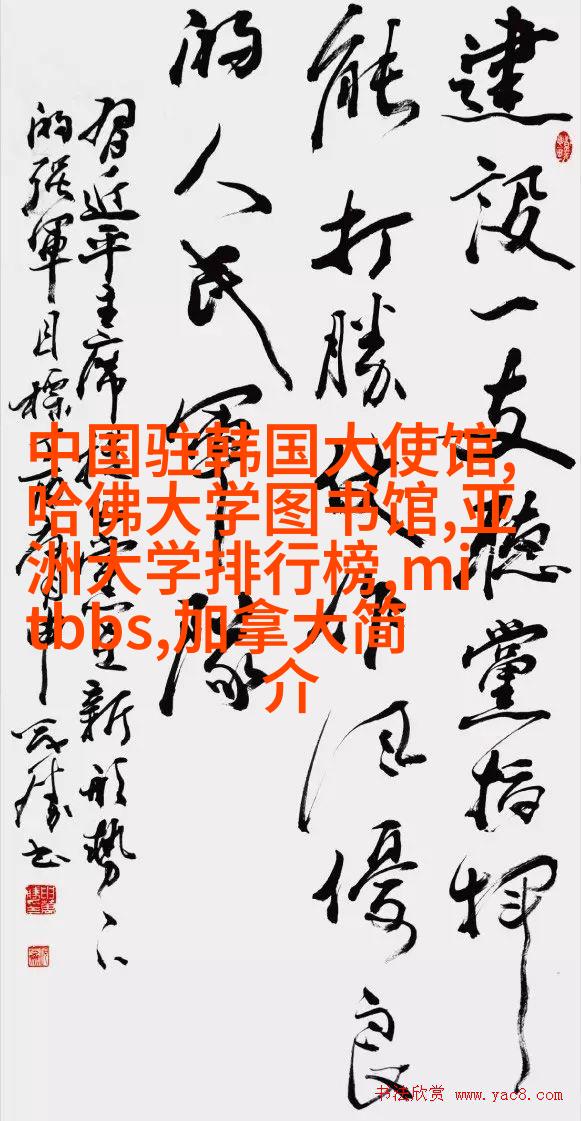 建設一支聽黨指揮
能打勝仗作風優良
的人民軍隊
習近平主席提出黨在新形勢下
的强軍目標
中国驻韩国大使馆,
哈佛大学图书馆,亚
洲大学排行榜,mi
tbbs,加拿大简
介
书法欣赏 www.yac8.com